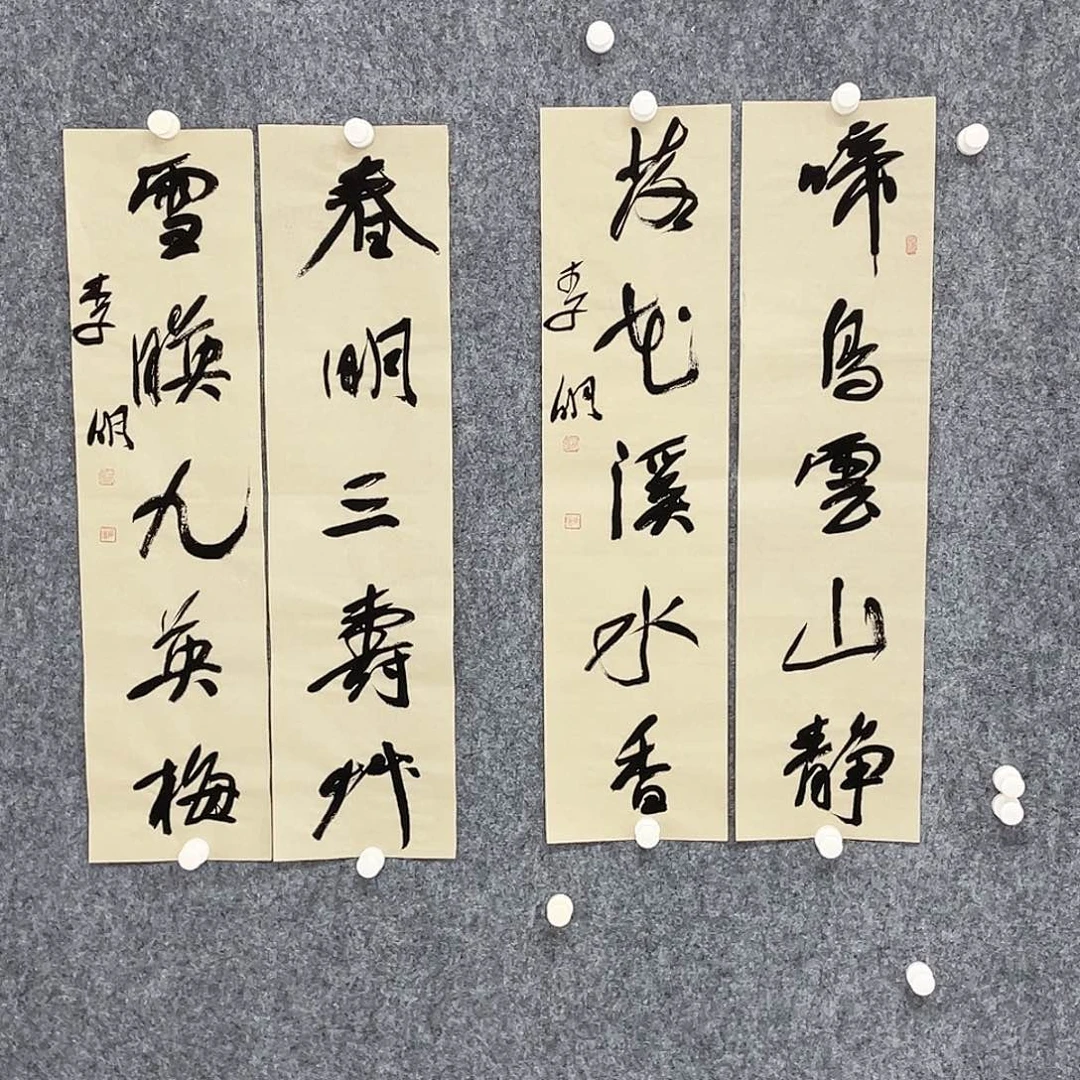 啼鳥雲山靜
落花溪水香
李明
春明三壽艸
雪暎九英梅
李明